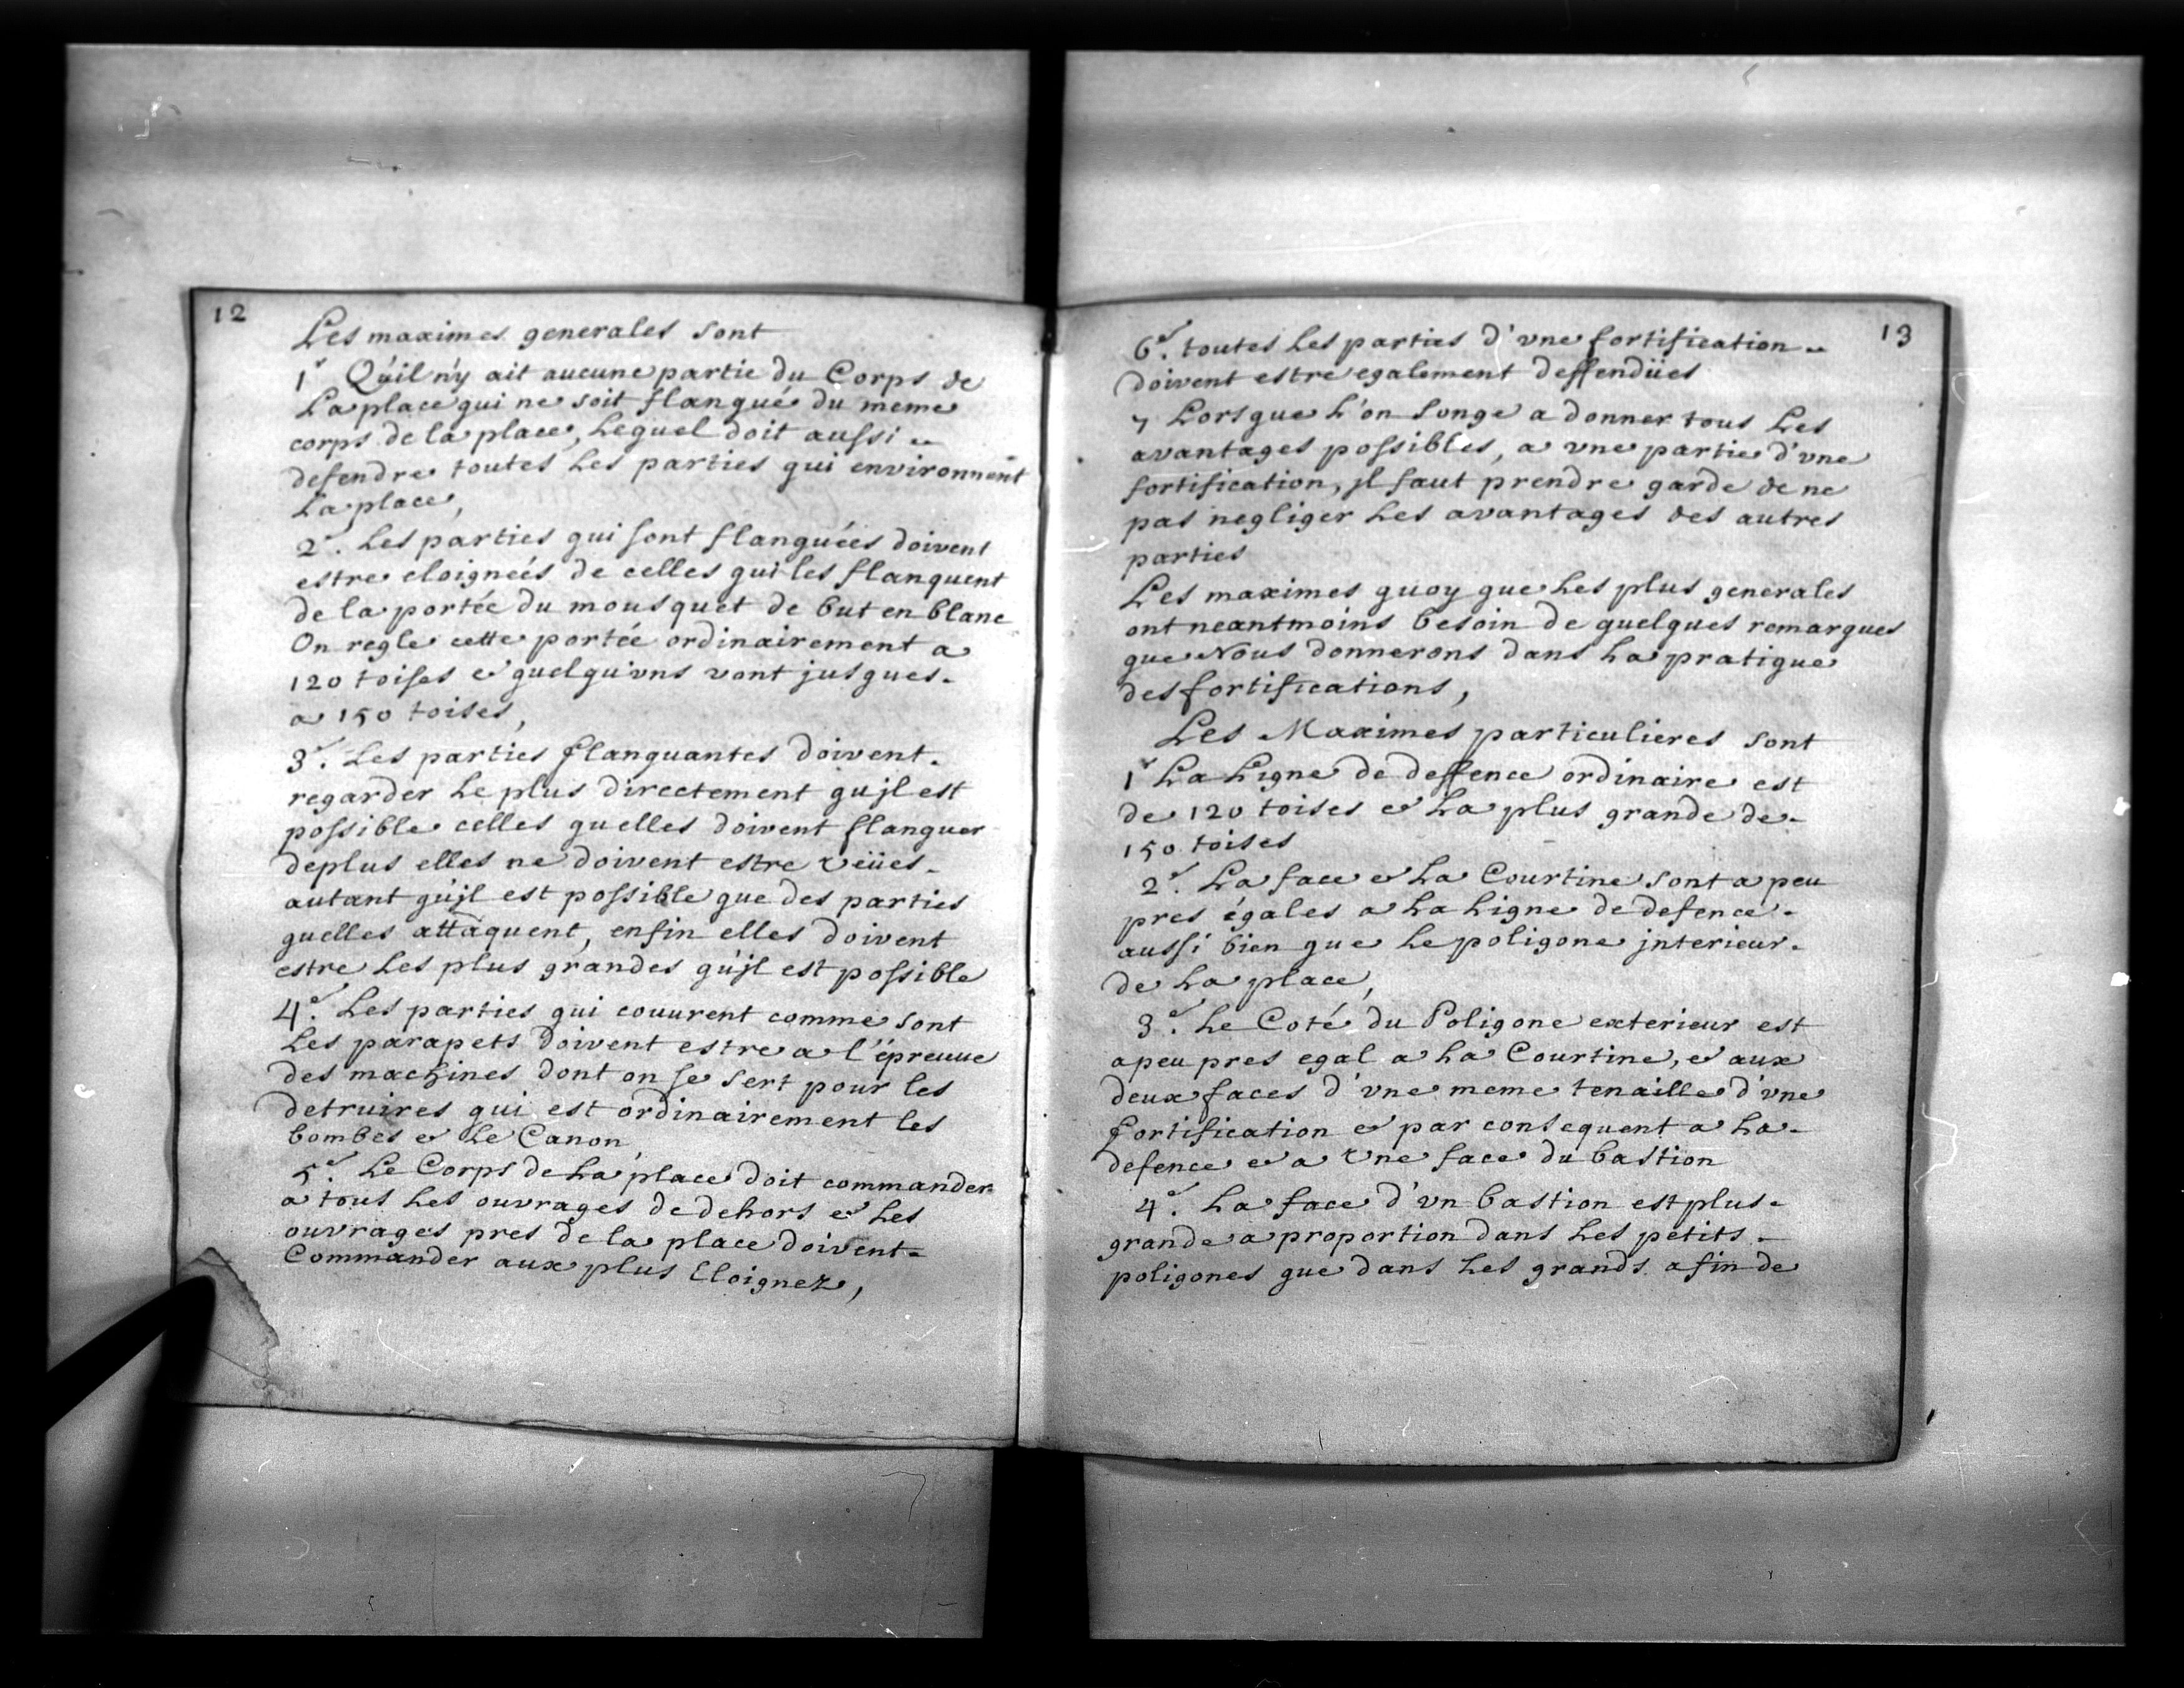 12
Les maximes generales sont
1.r Qu'il n'y ait aucune partie du Corps de
La place qui ne soit flanqué du meme
corps de la place, Lequel doit aussi
defendre toutes Les parties qui environnent
La place,
2.e Les parties qui sont flanquées doivent
estre eloigneés de celles qui les flanquent
de la portée du mousquet de but en blanc
On regle cette portée ordinairement a
120 toises et quelqu'vns vont jusques
a 150 toises,
3.e Les parties flanquantes doivent
regarder Le plus directement qu'jl est
possible celles quelles doivent flanquer
deplus elles ne doivent estre veües
autant qu'jl est possible que des parties
quelles attaquent, enfin elles doivent
estre Les plus grandes qu'jl est possible
4.e Les parties qui couurent comme sont
Les parapets doivent estre a l'épreuue
des machines dont on se sert pour les
detruires qui est ordinairement les
bombes et Le Canon
5.e Le Corps de La place doit commander
a tous Les ouvrages de dehors et Les
ouvrages pres de la place doivent
Commander aux plus Eloignez,
13
6.e toutes Les parties d'vne fortification
doivent estre egalement deffendües
7 Lorsque L'on songe a donner tous Les
avantages possibles, a vne partie d'vne
fortification, jl faut prendre garde de ne
pas negliger Les avantages des autres
parties
Les maximes quoy que Les plus generales
ont neantmoins besoin de quelques remarques
que Nous donnerons dans La pratique
des fortifications,
Les Maximes particulieres sont
1.r La Ligne de deffence ordinaire est
de 120 toises et La plus grande de
150 toises
2.e La face et La Courtine sont a peu
pres égales a La Ligne de defence
aussi bien que Le poligone jnterieur
de La place,
3.e Le Coté du Poligone exterieur est
apeu pres egal a La Courtine, et aux
deux faces d'vne meme tenaille d'vne
fortification et par consequent a La
defence et a vne face du bastion
4.e La face d'vn bastion est plus
grande a proportion dans Les petits
poligones que dans Les grands afin de